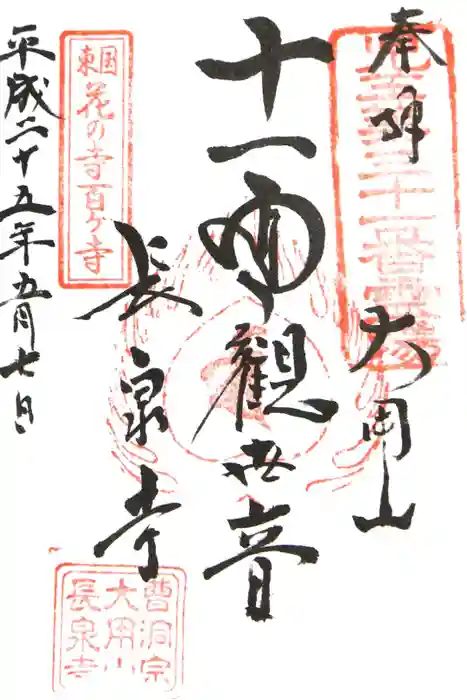 奉拝 大用山
児玉
三十一番霊場
十一面観世音
長泉寺
東国花の寺百ヶ寺
平成二十五年五月七日
曹洞宗
大用山
長泉寺